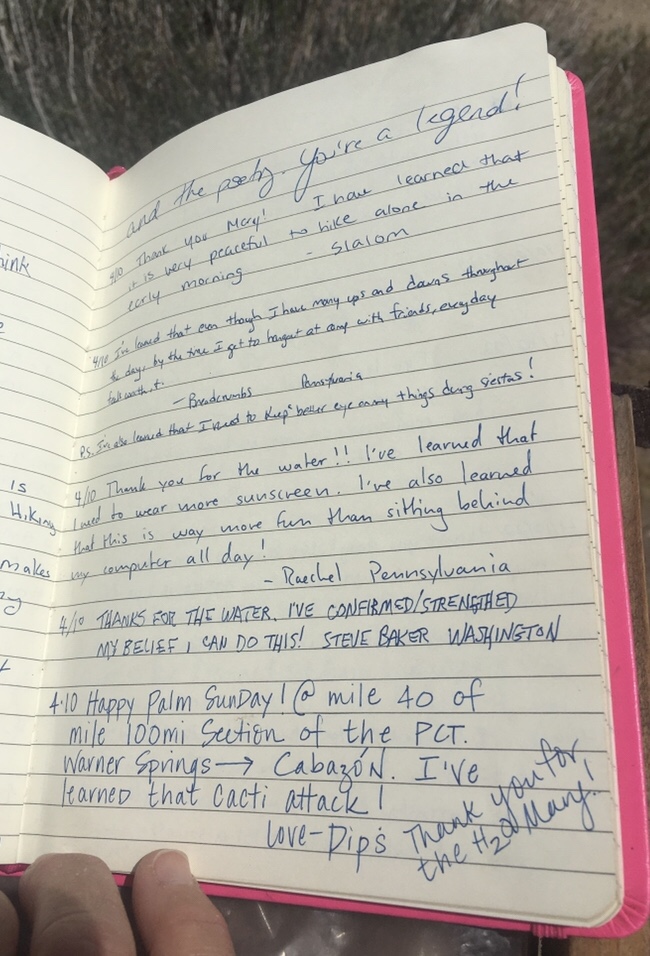 hink
is
Hiking
makes
and the poetry. You're a legend!
4/10 Thank you Mary! I have learned that
it is very peaceful to hike alone in the
early morning - Slalom
4/10 I've learned that even though I have many ups and downs throughout
the day, by the time I get to hangout at camp with friends, everyday
- Breadcrumbs Pennsylvania
P.S. I've also learned that I need to keep better eye on my things during siestas!
4/10 Thank you for the water!! I've learned that
I need to wear more sunscreen. I've also learned
that this is way more fun than sitting behind
my computer all day!
- Raechel Pennsylvania
4/10 THANKS FOR THE WATER. I'VE CONFIRMED/STRENGTHED
MY BELIEF, I CAN DO THIS! STEVE BAKER WASHINGTON
4.10 Happy Palm Sunday! @ mile 40 of
mile 100mi Section of the PCT.
Warner Springs → Cabazón. I've
learned that Cacti attack!
Love-Dips
Thank you for
the H2O Mary!